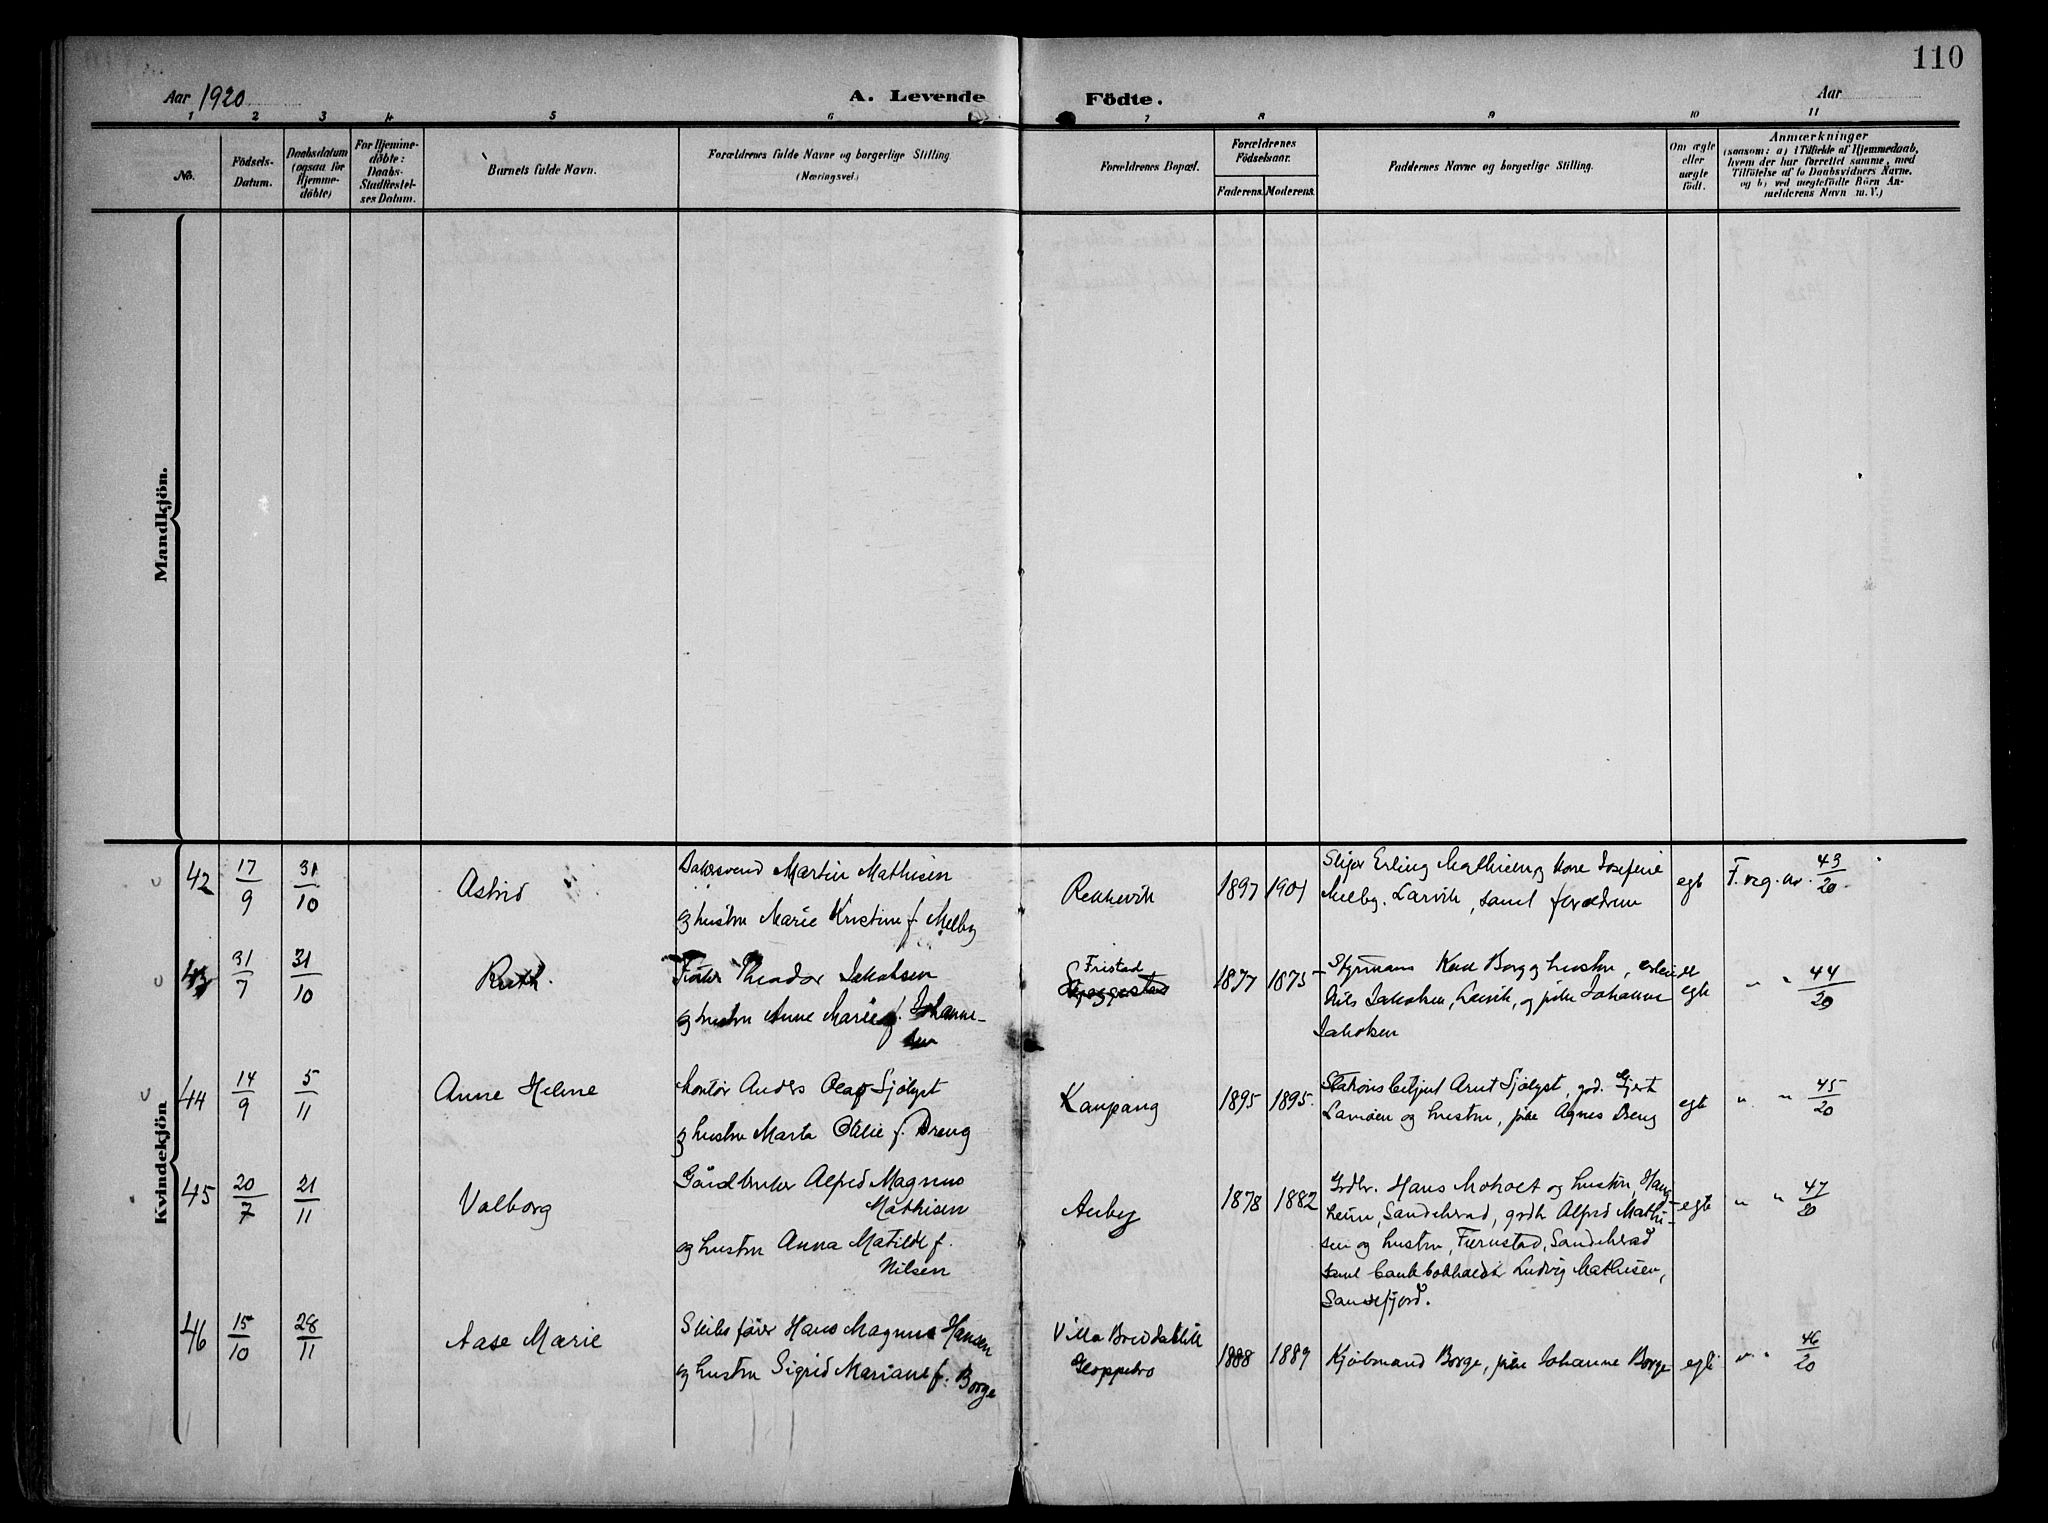 110
Aar 1920
A. Levende Födte.
Aar
1 2 3 4 5 6 7 8 9 10 11
No.
Födsels-
Datum.
Daabsdatum
(ogsaa for
Hjemme-
döbte)
For Hjemme-
döbte:
Daabs-
Stadfæstel-
ses Datum.
Barnets fulde Navn.
Forældrenes fulde Navne og borgerlige Stilling.
(Næringsvei.)
Forældrenes Bopæl.
Forældrenes
Födselsaar.
Faderens. Moderens.
Faddernes Navne og borgerlige Stilling.
Om ægte
eller
uægte
födt.
Anmærkninger
(saasom: a) i Tilfælde af Hjemmedaab,
hvem der har forrettet samme, med
Tilföielse af to Daabsvidners Navne.
og b) ved uægtefödte Börn An-
melderens Navn m. V.)
Mandkjön.
Kvindekjön
42 17/9 31/10 Astrid
Bakersvend Martin Mathisen
og hustru Marie Kristine f. Melby
Rekkevik 1897 1901
Erling Mathisen og Kone Josefine
Melby, Larvik, samt forældrene
egte F. reg. nr. 43/20
43 31/7 31/10 Ruth.
Theodor Jakobsen
og hustru Anne Marie f. Johanne-
sen
Fristad
1877 1875
Styrmans Karl Borg og hustru, arbeidet
Nils Jakobsen, Larvik, og pike Johanne
Jakobsen
egte " " 44/20
44 14/9 5/11 Anne Helene
kontor Anders Olaf Sjölyst
og hustru Marta Otilie f. Dreng
Kaupang 1895 1895.
Stations betjent Arnt Sjölyst, grd. Gjert
Lamöen og hustru, pike Agnes Dreng
egte " " 45/20
45 20/7 21/11 Valborg
Gårdbruker Alfred Magnus
Mathisen
og hustru Anna Matilde f.
Nilsen
Auby 1878 1882
Grdbr. Hans Moholt og hustru, Haug-
heim, Sandeherad, grdbr Alfred Mathi-
sen og hustru, Furustad, Sandeherad
samt bankbokholder Ludvig Mathisen,
Sandefjord.
egte " " 47/20
46 15/10 28/11 Aase Marie
Skibsförer Hans Magnus Hansen
og hustru Sigrid Mariane f. Borge
Villa Breidablik
Gloppebro
1888 1889
Kjöbmand Borge, pike Johanne Borge
egte " " 46/20